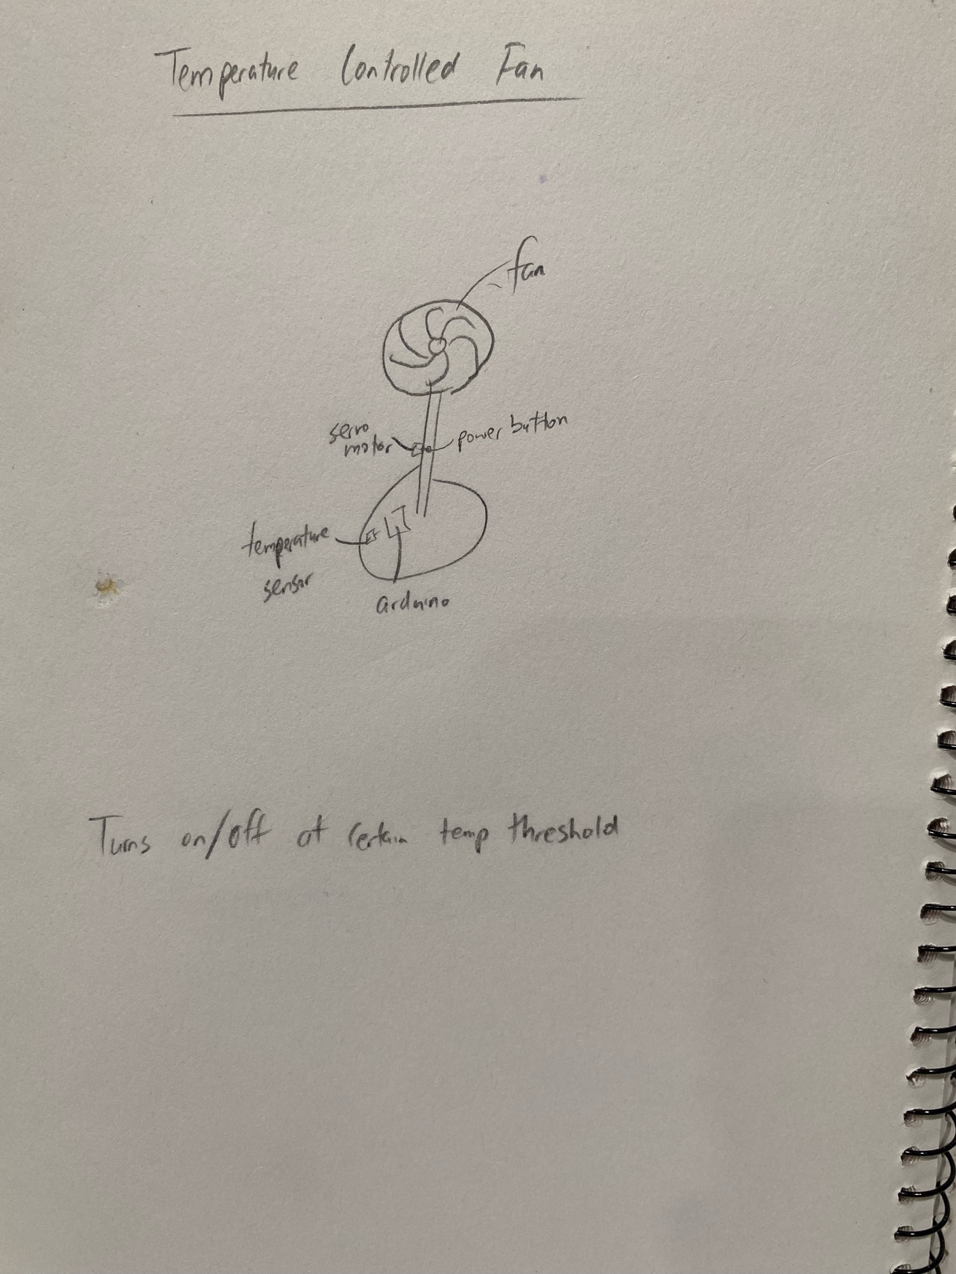 Temperature Controlled Fan
fan
servo
motor
power button
temperature
sensor
arduino
Turns on/off at certain temp threshold